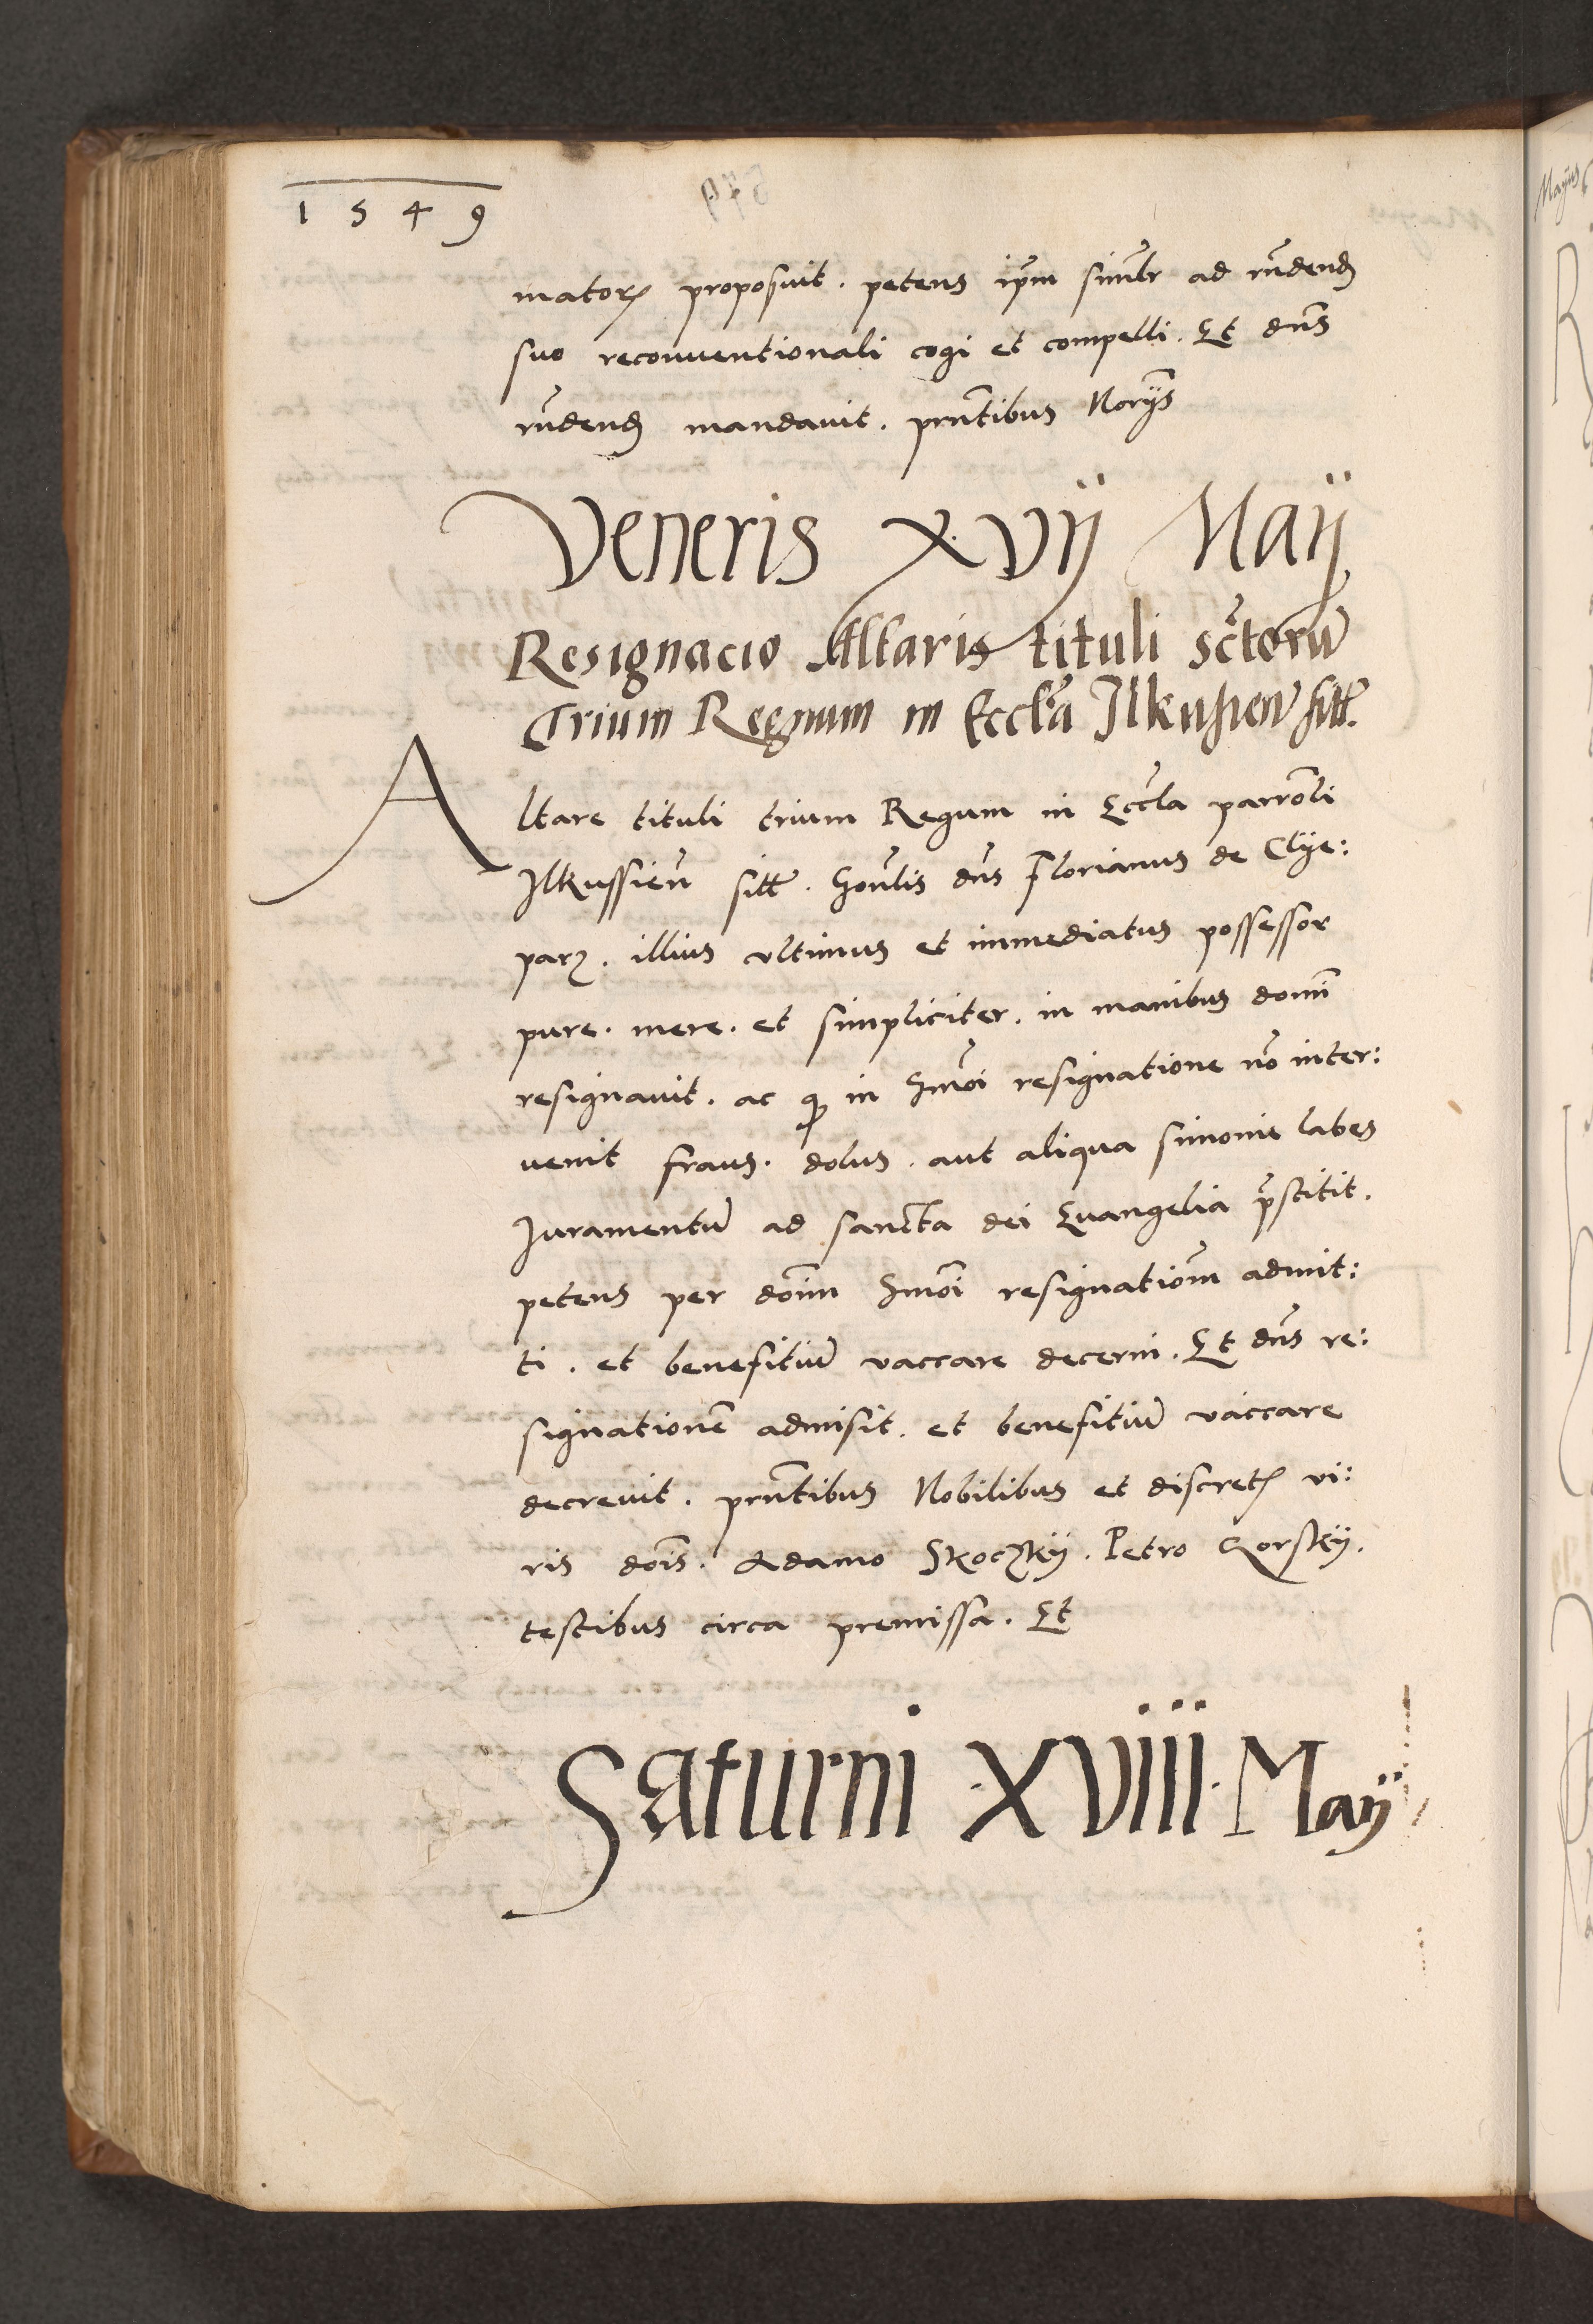 1549
mator(um) proposuit. petens ipm similr ad rndend
suo reconventionali cogi et compelli. Et dns
rndend mandavit. pntibus Norijs
Veneris XVIJ Maij
Resignacio Altaris tituli sctoru
Trium Regnum in Eccl'ia Ilkusien sitt.
Altare tituli trium Regum in Eccla parroli
Ilkussien sitt. Honlis dns Florianus de Clye:
parz. illius ultimus et immediatus possessor
pure. mere. et simpliciter. in manibus domi
resignavit. ac q in hmoi resignatione no inter:
venit fraus. dolus. aut aliqua simonie labes
Juramentu ad sancta dei Evangelia prstitit.
petens per domm hmoi resignatiom admit:
ti. et benefitiu vaccare decerni. Et dns re:
signatione admisit. et benefitiu vaccare
decrevit. pntibus Nobilibus et discret vi:
ris dois. Adamo Skoczkij. Petro Gorskij.
testibus circa premissa. Et
Saturni XVIII Maij